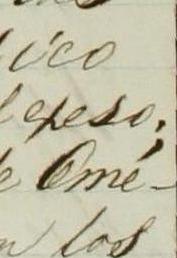 ico
l peso;
e Omé-
n los